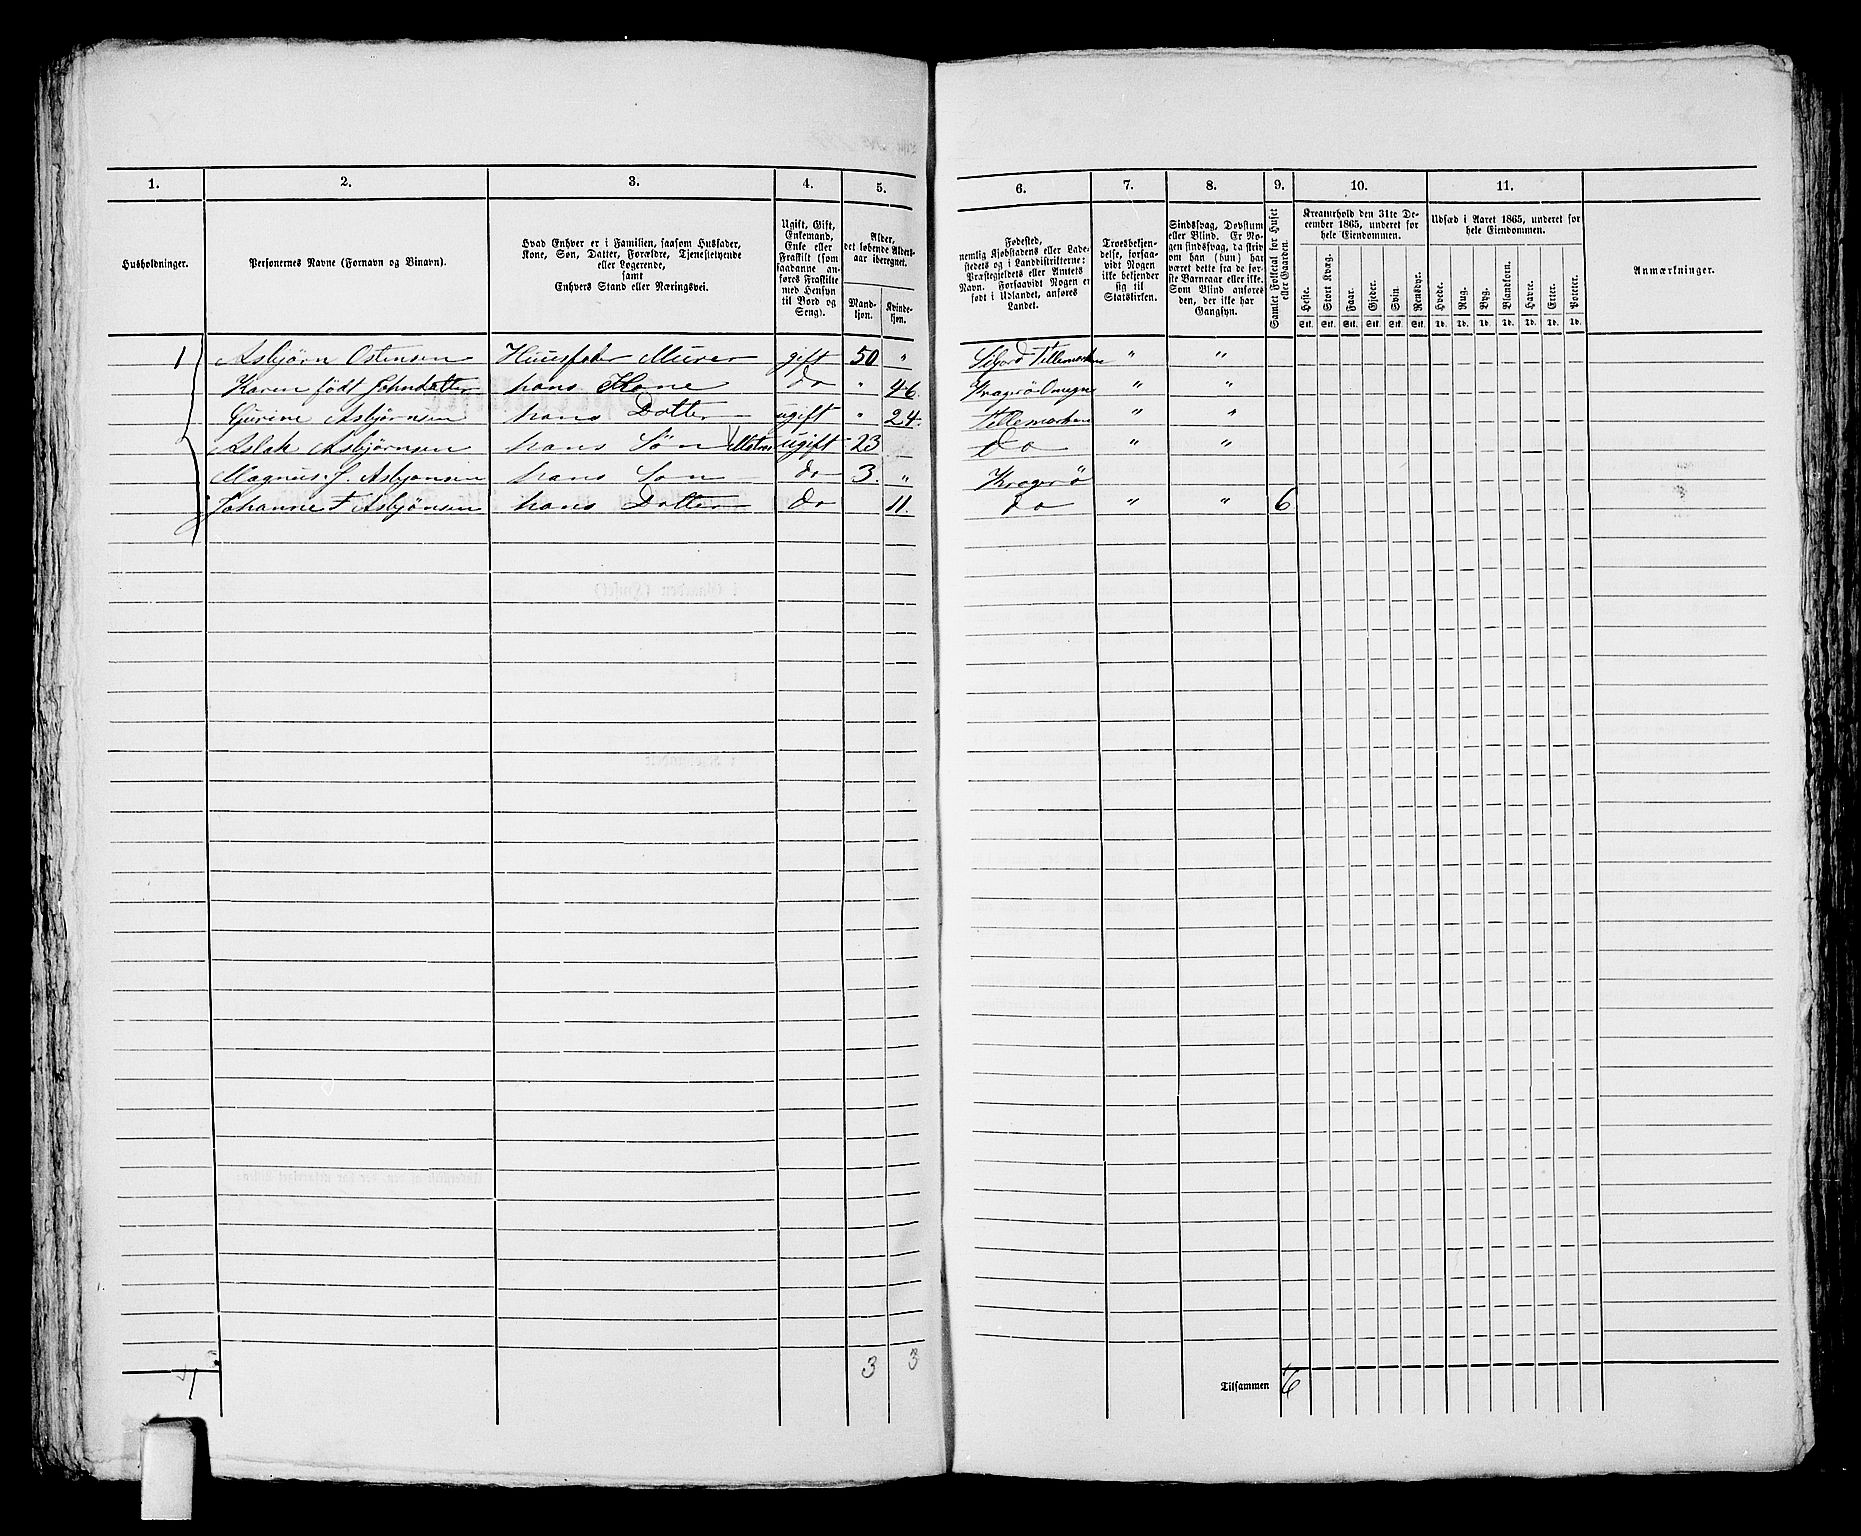 1. 2. 3. 4. 5. 6. 7. 8. 9. 10. 11.
Husholdninger.
Personernes Navne (Fornavn og Binavn).
Hvad Enhver er i Familien, saasom Husfader,
Kone, Søn, Datter, Forældre, Tjenestetyende
eller Logerende,
samt
Enhvers Stand eller Næringsvei.
Ugift, Gift,
Enkemand,
Enke eller
Fraskilt (som
saadanne an-
føres Fraskilte
med Hensyn
til Bord og
Seng).
Alder,
det løbende Alders-
aar iberegnet.
Mand-
kjøn.
Kvinde-
kjøn.
Fødested,
nemlig Kjøbstadens eller Lade-
stedets og i Landdistrikterne:
Præstegjeldets eller Amtets
Navn. Forsaavidt Nogen er
født i Udlandet, anføres
Landet.
Troesbekjen-
delse, forsaa-
vidt Nogen
ikke bekjender
sig til
Statskirken.
Sindssvag, Døvstum
eller Blind. Er No-
gen sindssvag, da skriv
om han (hun) har
været dette fra de før-
ste Barneaar eller ikke.
Som Blind anføres
den, der ikke har
Gangsyn.
Samlet Folketal for Huset
eller Gaarden.
Kreaturhold den 31te De-
cember 1865, underet for
hele Eiendommen.
Heste. Stort Kvæg. Faar. Gjeder. Svin. Rensdyr.
Stk. Stk. Stk. Stk. Stk. Stk.
Udsæd i Aaret 1865, underet for
hele Eiendommen.
Hvede. Rug. Byg. Blandkorn. Havre. Erter. Poteter.
Td. Td. Td. Td. Td. Td. Td.
Anmærkninger.
1 Asbjørn Ostensen Huusfader Murer gift 50 " Siljord Tillemarken " "
Karen født Johndatter hans Kone do " 46. Kragerö Omegn " "
Gurine Asbjørnsen hans Dotter ugift " 24. Tillemarken " "
Aslak Asbjørnsen hans Søn Matros ugift 23 do " "
Magnus. J. Asbjønsen hans Son do 3. " Kragerö
Johanne F Asbjønsen hans Dotter do 11 do " " 6
1 3 3 Tilsammen 6